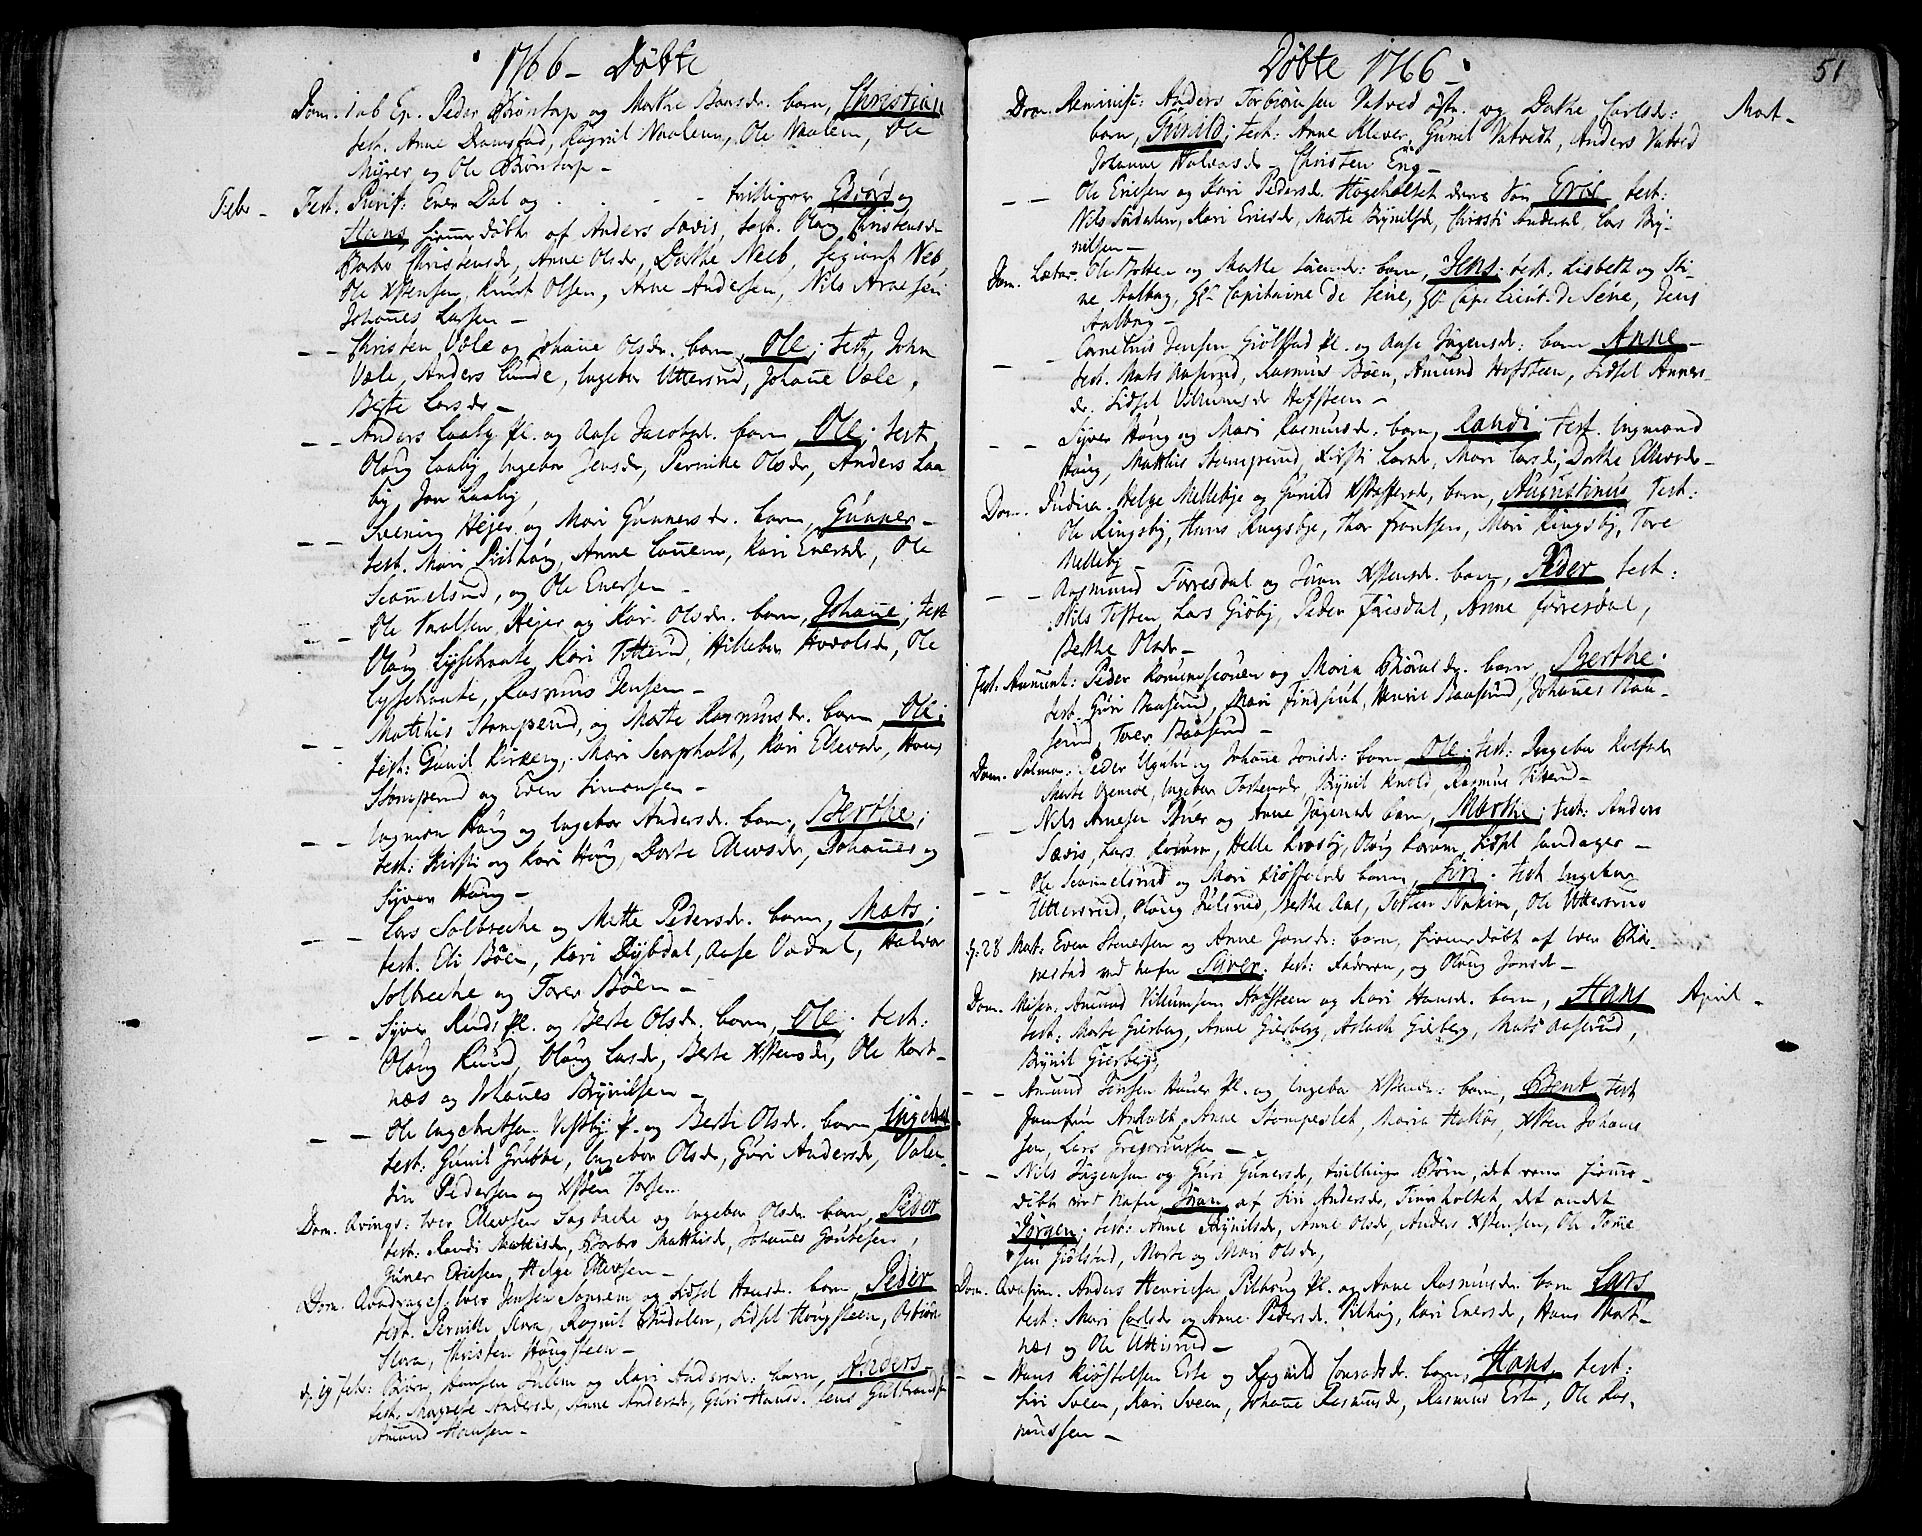 1766 - Döbte
Dom. 1 ab Ep. Peder Bröntorp og Marthe Hansdr. barn, Christian
test. Anne Dramstad, Ragnil Naalem, Ole Naalem, Ole
Myrer og Ole Bröntorp -
Febr - Fest. Purif: Even Dal og - - tvillinger Edvörd og
Hans hiemmedöbte af Anders Sævis, test. Olaug Christensdr
Barbro Christensdr, Anne Olsdr, Dorthe Neeb, Sergiant Neb,
Ole Xstensen, Knut Olsen, Arne Andersen, Nils Arnesen
Johanes Larsen -
- - Christen Vale og Johane Olsdr. barn, Ole; test, John
Vale, Anders Lunde, Ingebor Uttersrud, Johane Vale,
Berte Larsdr -
- - Anders Laaby Pl. og Aase Jacobsdr. barn Ole; test.
Olaug Laaby, Ingebor Jensdr, Pernike Olsdr, Anders Laa-
by, Jon Laaby,
- - Svening Hejer og Mari Gunnersdr. barn, Gunner -
test. Mari Pilthoug, Anne Lauem, Kari Evensdr, Ole
Scamelsrud, og Ole Evensen -
- - Ole Paalsen Hejer og Kari Olsdr. barn, Johane; test
Olaug Lysebraate, Kari Totterud, Hillebor Hovolsdr, Ole
Lysebraate, Rasmus Jensen -
- - Matthis Stomperud, og Marte Rasmusdr. barn, Ole;
test: Gunil Kirkeng, Mari Scarpholt, Kari Ellevsdr, Hans
Stomperud og Even Simonsen -
- - Ingmon Haug og Ingebor Andersdr. barn, Berthe;
test: Kirsti og Kari Haug, Dorte Ellevsdr, Johanes og
Syver Haug -
- - Lars Solbreche og Mette Pedersdr. barn, Mats;
test. Eli Böen, Kari Dybdal, Aase Vadal, Halvor
Solbreche og Torer Böen -
- - Syver Ruud Pl. og Berte Olsdr. barn, Ole; test:
Olaug Ruud, Olaug Larsdr, Berte Xstensdr, Ole Kort-
næs og Johanes Brynilsen -
- - Ole Ingebretsen Vestby Pl. og Berte Olsdr. barn, Ingebret
test: Gunil Grubbe, Ingebor Olsdr, Guri Andersdr, Valen-
tin Pedersen og Xsten Torsen.
Dom. Qvinqs: Iver Ellevsen Sagbache og Ingebor Olsdr. barn, Peder
test: Randi Mathisdr, Barbro Matthisdr, Johanes Gautesen,
Guner Ericsen, Helge Ellevsen -
Dom. Qvadrages. Iver Jensen Sonrem og Lidsel Hansdr. barn, Peder
test. Pernille Slora, Ragnil Studalen, Lidsel Haugsteen, Asbiörn
Slora, Christen Haugsteen -
d. 19 febr: Biörn Hansen Julem og Kari Andersdr: barn, Anders -
test. Magrete Andersdr, Anne Andersdr, Guri Hansd. Jens Gulbrandsen
Amund Hansen -
Döbte 1766 -
51
Dom. Reminisc: Anders Torbiönsen Vatved östr. og Dorthe Carlsdr: Mart -
barn, Gunild; test: Anne Klever, Gunil Vatvedt, Anders Vatved
Johanne Halvorsdr - Christen Eng -
- - Ole Ericsen og Kari Pedersdr. Högeholtet deres Sön, Eric test:
Nils Sudalen, Kari Ericsdr, Marte Brynilsdr, Christi Anderdal, Lars Bry-
nilsen -
Dom. Lætar. Ole Botten og Marthe barn, Jens; test: Lisbeth og Sti-
ne Aalborg, Hr Capitaine de Seüe, Hr Cap. Lieut. de Seüe, Jens
Aalborg -
- - Cornelius Jensen Giölstad Pl. og Aase Jögensdr: barn Anne -
test. Mats Aaserud, Rasmus Böen, Amund Hofsteen, Lidsel Anners-
dr. Lidsel Villumsdr Hofsteen -
- - Syver Haug og Mari Rasmusdr. barn, Randi test. Ingmond
Haug, Matthis Stomperud, Kirsti Larsdr, Mari Larsdr, Dorthe Ellevsdr -
Dom. Judica. Helge Mellebye og Gunild Xstoffersdr, barn, Augustinus test:
Ole Ringsby, Hans Ringsbye, Thor Frantsen, Mari Ringsby, Tore
Melleby -
- - Aasmund Torresdal og Jöran Xstensdr. barn, Peder test:
Nils Tosten, Lars Giöby, Peder Toresdal, Anne Torresdal,
Berthe Olsdr -
Fest: Anunt: Peder og Maria Biörnsdr. barn, Berthe.
test. Guri Baaserud, Mari Findsrud, Henric Baaserud, Johanes Baa-
serud, Torer Baaserud -
Dom. Palmar: Peder og Johane Jonsdr: barn, Ole; test: Ingebor Rolfsdr
Marte Ydemoe, Ingebor Tostensdr, Brynil Knold, Rasmus
- - Nils Arnesen Buer og Anne Jögensdr barn, Marthe; test: Anders
Sævis, Lars Korüm, Helle Krosby, Olaug Korum, Lidsel Sandager -
- - Ole Scammelsrud og Mari Kiöstelsdr barn, Siri. test Ingebor
Uttersrud, Olaug Julsrud, Berthe Aas, Tosten Nokim, Ole Uttersrud
d: 28 Mart: Even Stenersen og Anne Jonsdr: barn, hiemedöbt af Iver Bör-
nestad ved nafn Syver; test: Faderen, og Olaug Jonsdr -
Dom. Miser. Amund Villumsen Hofsteen og Kari Hansdr. barn, Hans April -
test: Marte Gierberg, Anne Gierberg, Aslach Gierberg, Mats Aaserud,
Brynil Gierberg,
- - Amund Jensen Haner Pl. og Ingebor Xstensdr: barn, Bent test
Jomfru Anholt, Anne Stompeslet, Maria Holtos, Xsten Johans
sen, Lars Gregoriussen -
- - Nils Jögensen og Guri Gunersdr, tvillinge Börn, det eene hieme-
döbte ved nafn, Jöran af Siri Andersdr, Timrholtet, det andet
Jörgen; test: Anne Brynilsdr, Anne Olsdr, Anders Xstensen, Ole Tome
sen Giölstad, Marte og Mari Olsdr,
Dom. Qvasim. Anders Henricsen Pilthoug Pl. og Anne Rasmusdr. barn Lars
test: Mari Carlsdr og Anne Pedersdr. Pilthoug, Kari Evensdr, Hans Kort-
næs og Ole Uttersrud -
- - Hans Kiöstelsen Erte og Ragnild Conradsdr. barn, Hans, test:
Siri Sveen, Kari Sveen, Johane Rasmusdr, Rasmus Erte, Ole Ras-
mussen -